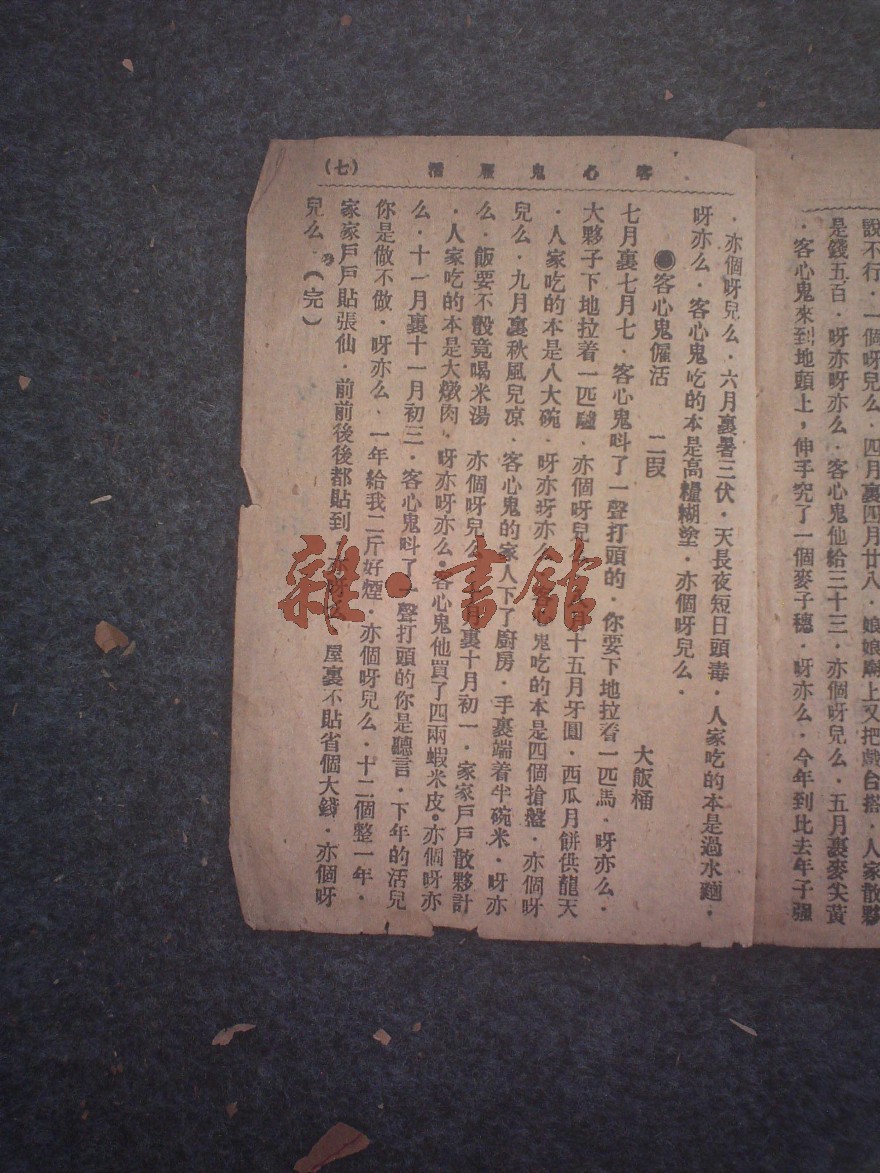 說不行．一個呀兒么．四月裏四月廿八．娘娘廟上又把戲台搭．人家散夥
是錢五百．呀亦呀亦么．客心鬼他給三十三．亦個呀兒么．五月裏麥尖黃
．客心鬼來到地頭上，伸手究了一個麥子穗．呀亦么．今年到比去年子强
客心鬼雇活 （七）
．亦個呀兒么．六月裏暑三伏．天長夜短日頭毒．人家吃的本是過水麵．
呀亦么．客心鬼吃的本是高糧糊塗．亦個呀兒么．
●客心鬼僱活 二段 大飯桶
七月裏七月七．客心鬼呌了一聲打頭的．你要下地拉着一匹馬．呀亦么．
大夥子下地拉着一匹驢．亦個呀兒 月十五月牙圓．西瓜月餅供龍天
．人家吃的本是八大碗．呀亦呀亦么 鬼吃的本是四個搶盤．亦個呀
兒么．九月裏秋風兒凉．客心鬼的家人下了廚房．手裏端着半碗米．呀亦
么．飯要不彀竟喝米湯 亦個呀兒么 月裏十月初一．家家戶戶散夥計
．人家吃的本是大燉肉．呀亦呀亦么．客心鬼他買了四兩蝦米皮。亦個呀亦
么．十一月裏十一月初三．客心鬼呌了一聲打頭的你是聽言．下年的活兒
你是做不做．呀亦么．一年給我二斤好煙．亦個呀兒么．十二個整一年．
家家戶戶貼張仙．前前後後都貼到 亦呀么 屋裏不貼省個大錢．亦個呀
兒么．（完）
雜·書館